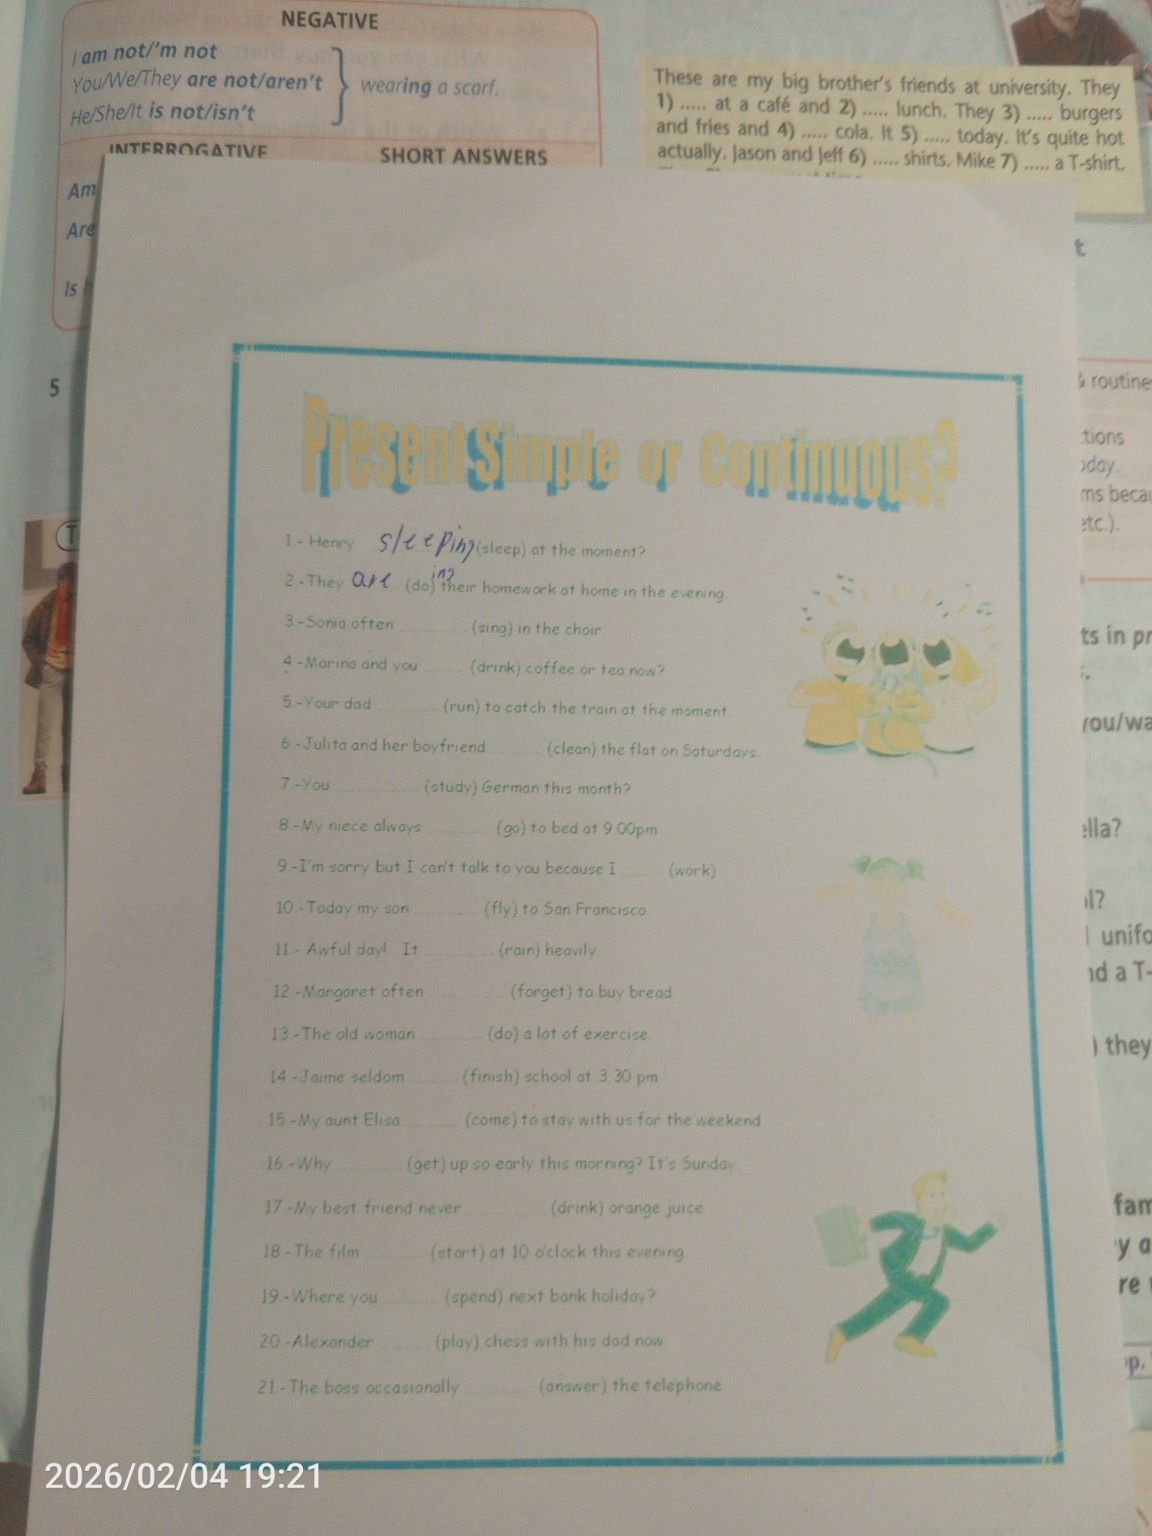 NEGATIVE
I am not/'m not
You/We/They are not/aren't
He/She/It is not/isn't
wearing a scarf.
INTERROGATIVE SHORT ANSWERS
Am
Are
Is
5
These are my big brother's friends at university. They
1) ..... at a café and 2) ..... lunch. They 3) ..... burgers
and fries and 4) ..... cola. It 5) ..... today. It's quite hot
actually. Jason and Jeff 6) ..... shirts. Mike 7) ..... a T-shirt.
& routine
today.
etc.).
ts in
you/wa
ella?
unifo
nd a T-
they
fam
y a
re
Present Simple or Continuous?
1.- Henry sleeping (sleep) at the moment?
2.-They are (do)ing their homework at home in the evening
3.-Sonia often ........ (sing) in the choir.
4.-Marina and you ........ (drink) coffee or tea now?
5.-Your dad ........ (run) to catch the train at the moment.
6.-Julita and her boyfriend ........ (clean) the flat on Saturdays.
7.-You ........ (study) German this month?
8.-My niece always ........ (go) to bed at 9.00pm
9.-I'm sorry but I can't talk to you because I ........ (work)
10.-Today my son ........ (fly) to San Francisco.
11.- Awful day! It ........ (rain) heavily.
12.-Margaret often ........ (forget) to buy bread.
13.-The old woman ........ (do) a lot of exercise.
14.-Jaime seldom ........ (finish) school at 3.30 pm
15.-My aunt Elisa ........ (come) to stay with us for the weekend.
16.-Why ........ (get) up so early this morning? It's Sunday.
17.-My best friend never ........ (drink) orange juice.
18.-The film ........ (start) at 10 o'clock this evening.
19.-Where you ........ (spend) next bank holiday?
20.-Alexander ........ (play) chess with his dad now.
21.-The boss occasionally ........ (answer) the telephone.
2026/02/04 19:21